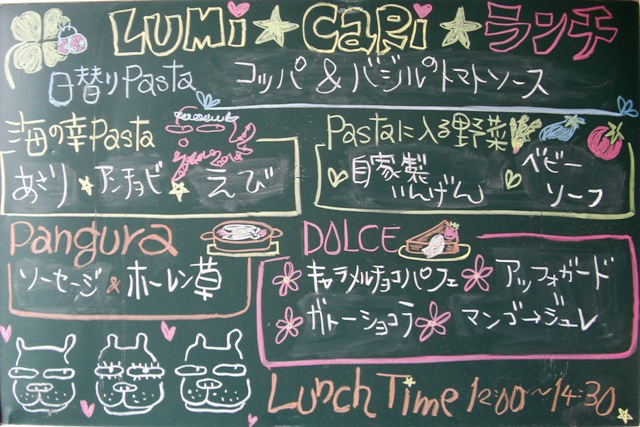 LUMi☆CaRi☆ランチ
日替りPasta コッパ&バジルのトマトソース
海の幸Pasta
あさり☆アンチョビ☆えび
Pastaに入る野菜
自家製 いんげん ベビー リーフ
Pangura
ソーセージ&ホーレン草
DOLCE
キャラメルチョコパフェ アッフォガード
ガトーショコラ マンゴージュレ
Lunch Time 12:00~14:30